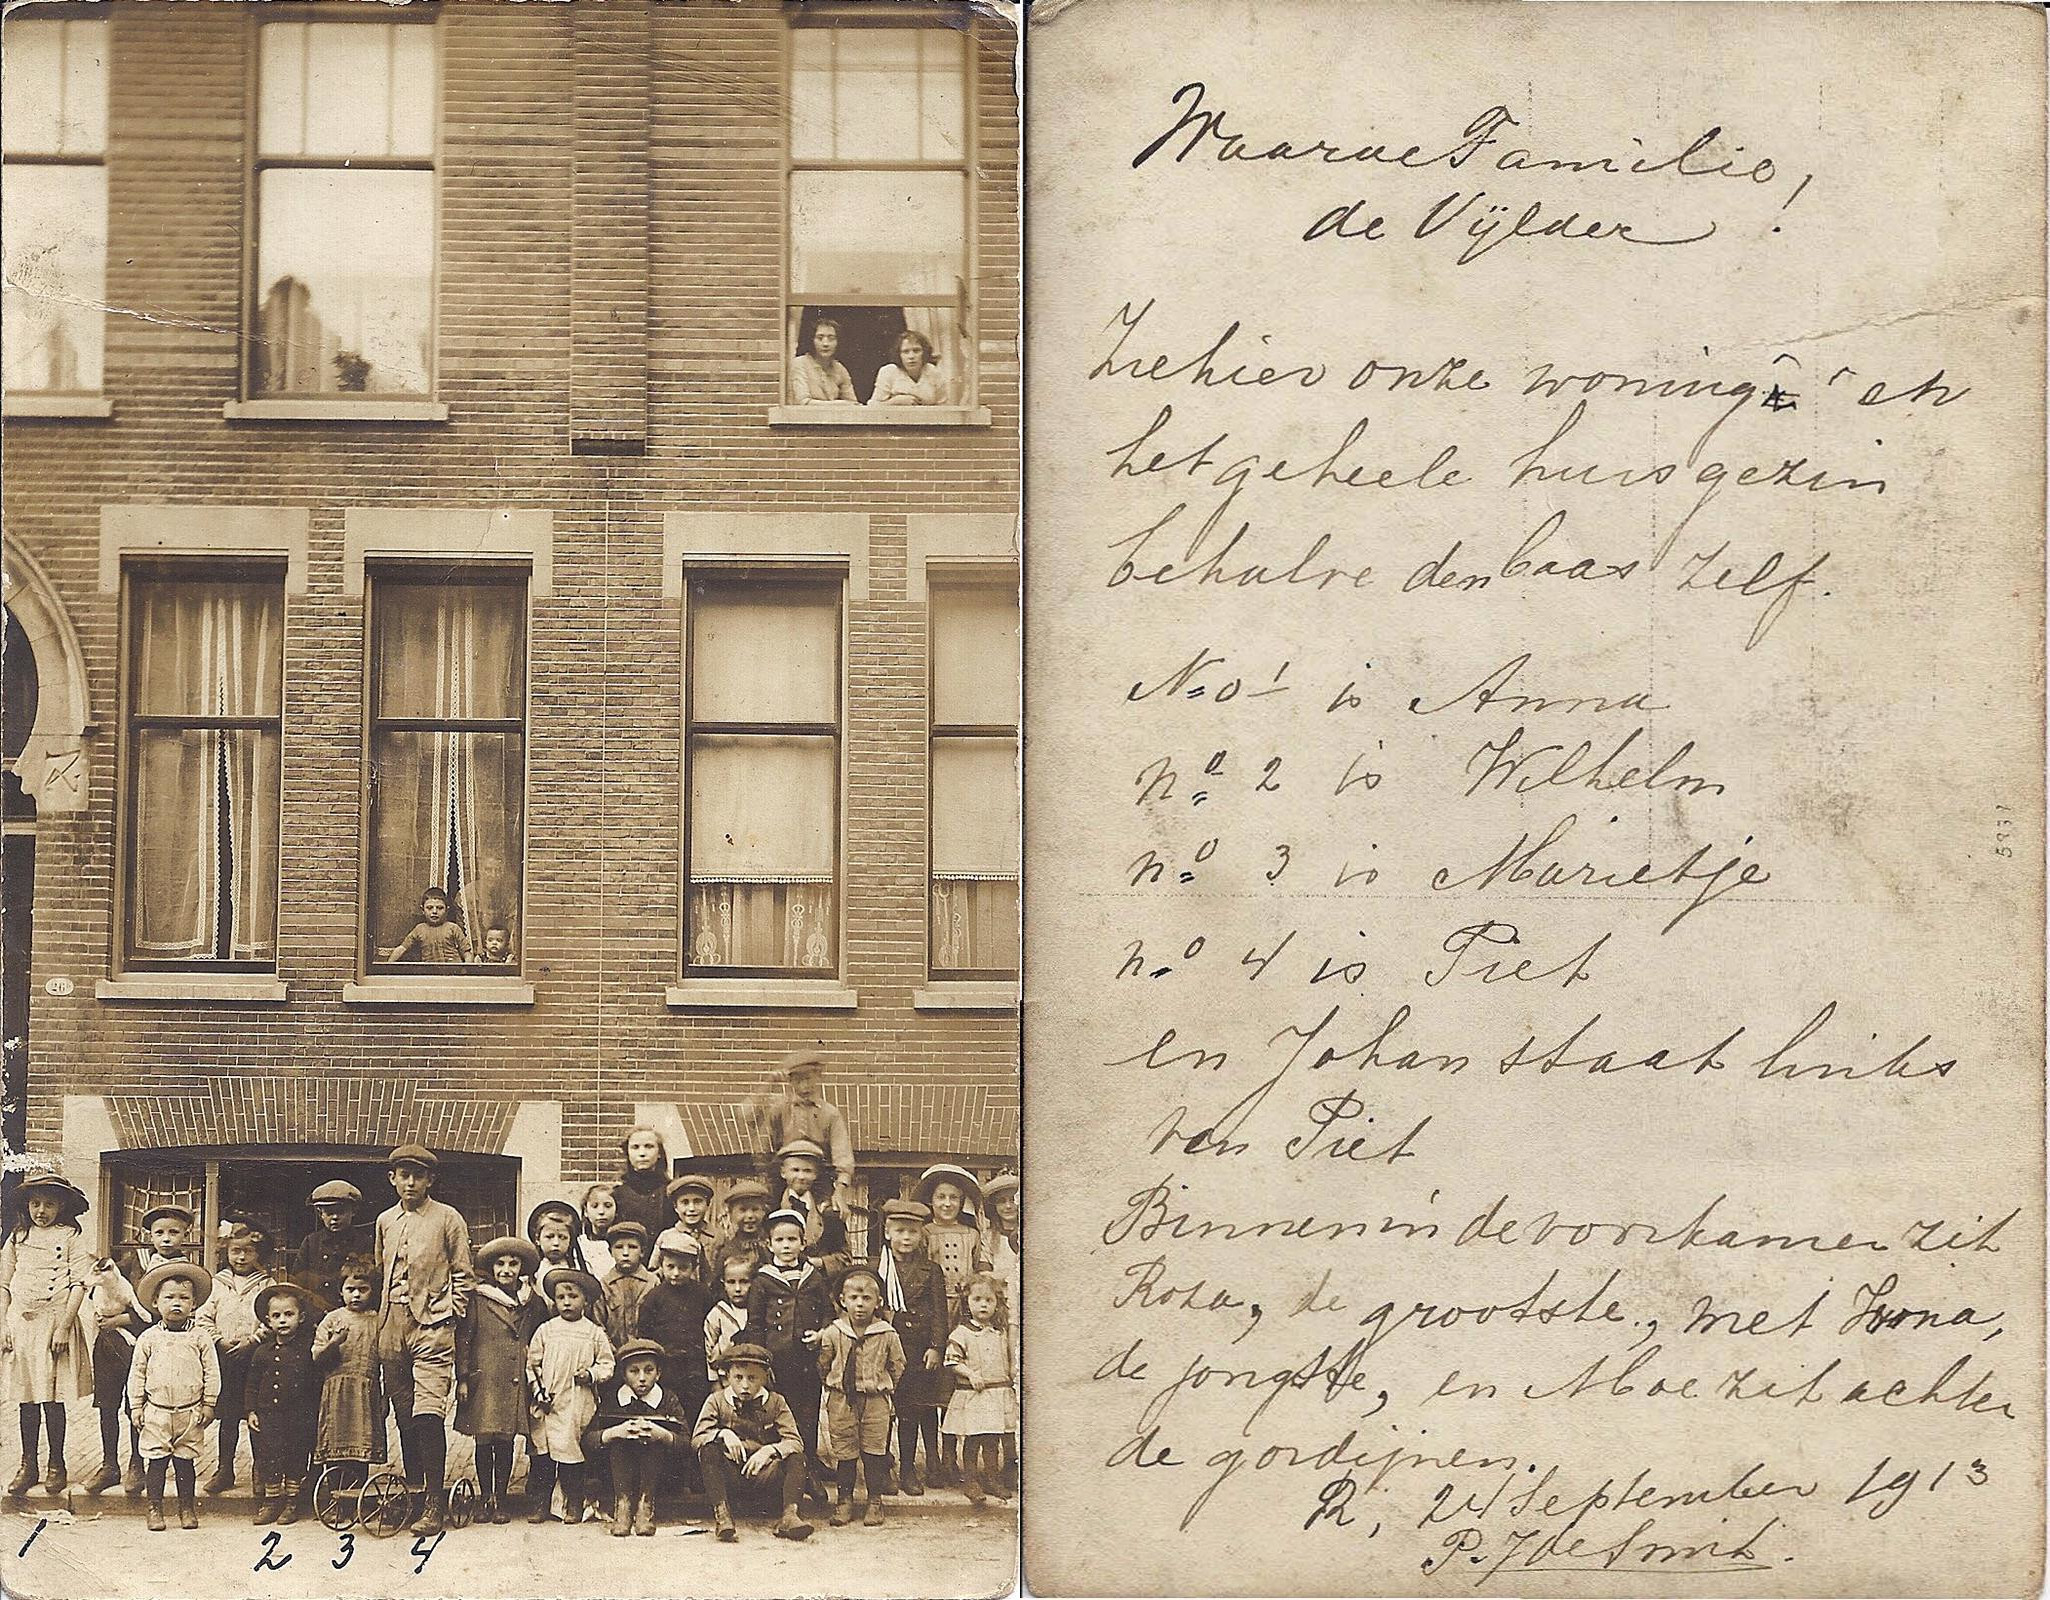 26
1
2 3 4
Waarde Familie,
de Vijlder!
Ziehier onze woning en
het geheele huisgezin
behalve den baas zelf.
No 1 is Anna
no 2 is Wilhelm
no 3 is Marietje
no 4 is Piet
en Johan staat links
van Piet
Binnen in de voorkamer zit
Roza, de grootste, met Irona,
de jongste, en Moe zit achter
de gordijnen.
R, 24 September 1913
P. J de Smit.